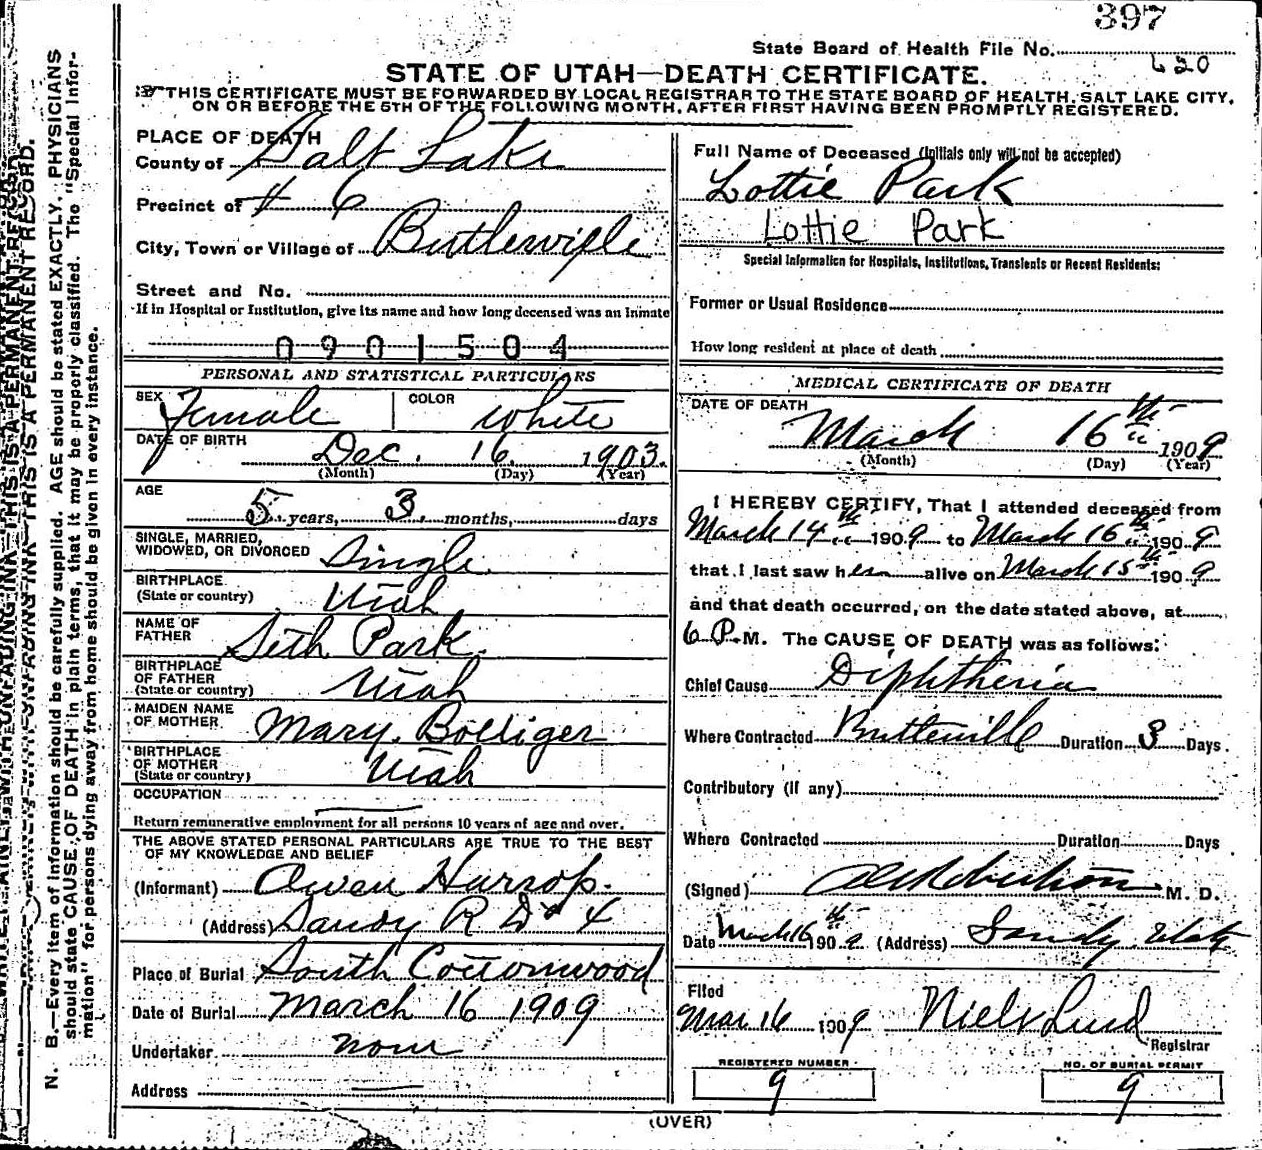 397
State Board of Health File No. 620
STATE OF UTAH—DEATH CERTIFICATE.
THIS CERTIFICATE MUST BE FORWARDED BY LOCAL REGISTRAR TO THE STATE BOARD OF HEALTH, SALT LAKE CITY,
ON OR BEFORE THE 5TH OF THE FOLLOWING MONTH, AFTER FIRST HAVING BEEN PROMPTLY REGISTERED.
PLACE OF DEATH
County of Salt Lake
Precinct of # 6
City, Town or Village of Butlerville
Street and No.
If in Hospital or Institution, give its name and how long deceased was an Inmate
0901504
PERSONAL AND STATISTICAL PARTICULARS
SEX Female COLOR White
DATE OF BIRTH
Dec. 16, 1903.
(Month) (Day) (Year)
AGE
5 years, 3 months, days
SINGLE, MARRIED,
WIDOWED, OR DIVORCED Single
BIRTHPLACE
(State or country) Utah
NAME OF
FATHER Seth Park
BIRTHPLACE
OF FATHER
(State or country) Utah
MAIDEN NAME
OF MOTHER Mary Bolliger
BIRTHPLACE
OF MOTHER
(State or country) Utah
OCCUPATION
Return remunerative employment for all persons 10 years of age and over.
THE ABOVE STATED PERSONAL PARTICULARS ARE TRUE TO THE BEST
OF MY KNOWLEDGE AND BELIEF
(Informant) Owen Harrop.
(Address) Sandy R D # 4
Place of Burial South Cottonwood
Date of Burial March 16 1909
Undertaker none
Address
Full Name of Deceased (Initials only will not be accepted)
Lottie Park
Lottie Park
Special Information for Hospitals, Institutions, Transients or Recent Residents:
Former or Usual Residence
How long resident at place of death
MEDICAL CERTIFICATE OF DEATH
DATE OF DEATH
March 16th 1909
(Month) (Day) (Year)
I HEREBY CERTIFY, That I attended deceased from
March 14th 1909 to March 16th 1909
that I last saw her alive on March 15th 1909
and that death occurred, on the date stated above, at
6 P. M. The CAUSE OF DEATH was as follows:
Chief Cause Diphtheria
Where Contracted Butlerville Duration 3 Days.
Contributory (if any)
Where Contracted Duration Days
(Signed) Robertson M. D.
Date March 16th 1909 (Address) Sandy Utah
Filed
Mar 16 1909 Niels Lind
Registrar
REGISTERED NUMBER
9
NO. OF BURIAL PERMIT
9
(OVER)
N. B.—Every item of information should be carefully supplied. AGE should be stated EXACTLY. PHYSICIANS
should state CAUSE OF DEATH in plain terms, that it may be properly classified. The "Special Infor-
mation" for persons dying away from home should be given in every instance.
THIS IS A PERMANENT RECORD.